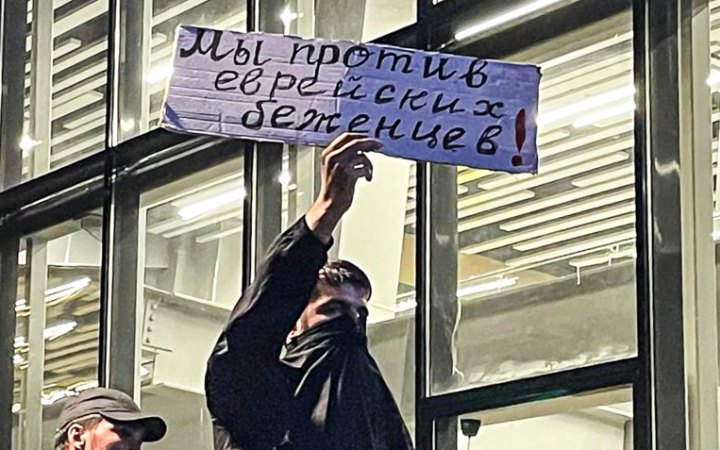 Мы против
еврейских
беженцев!